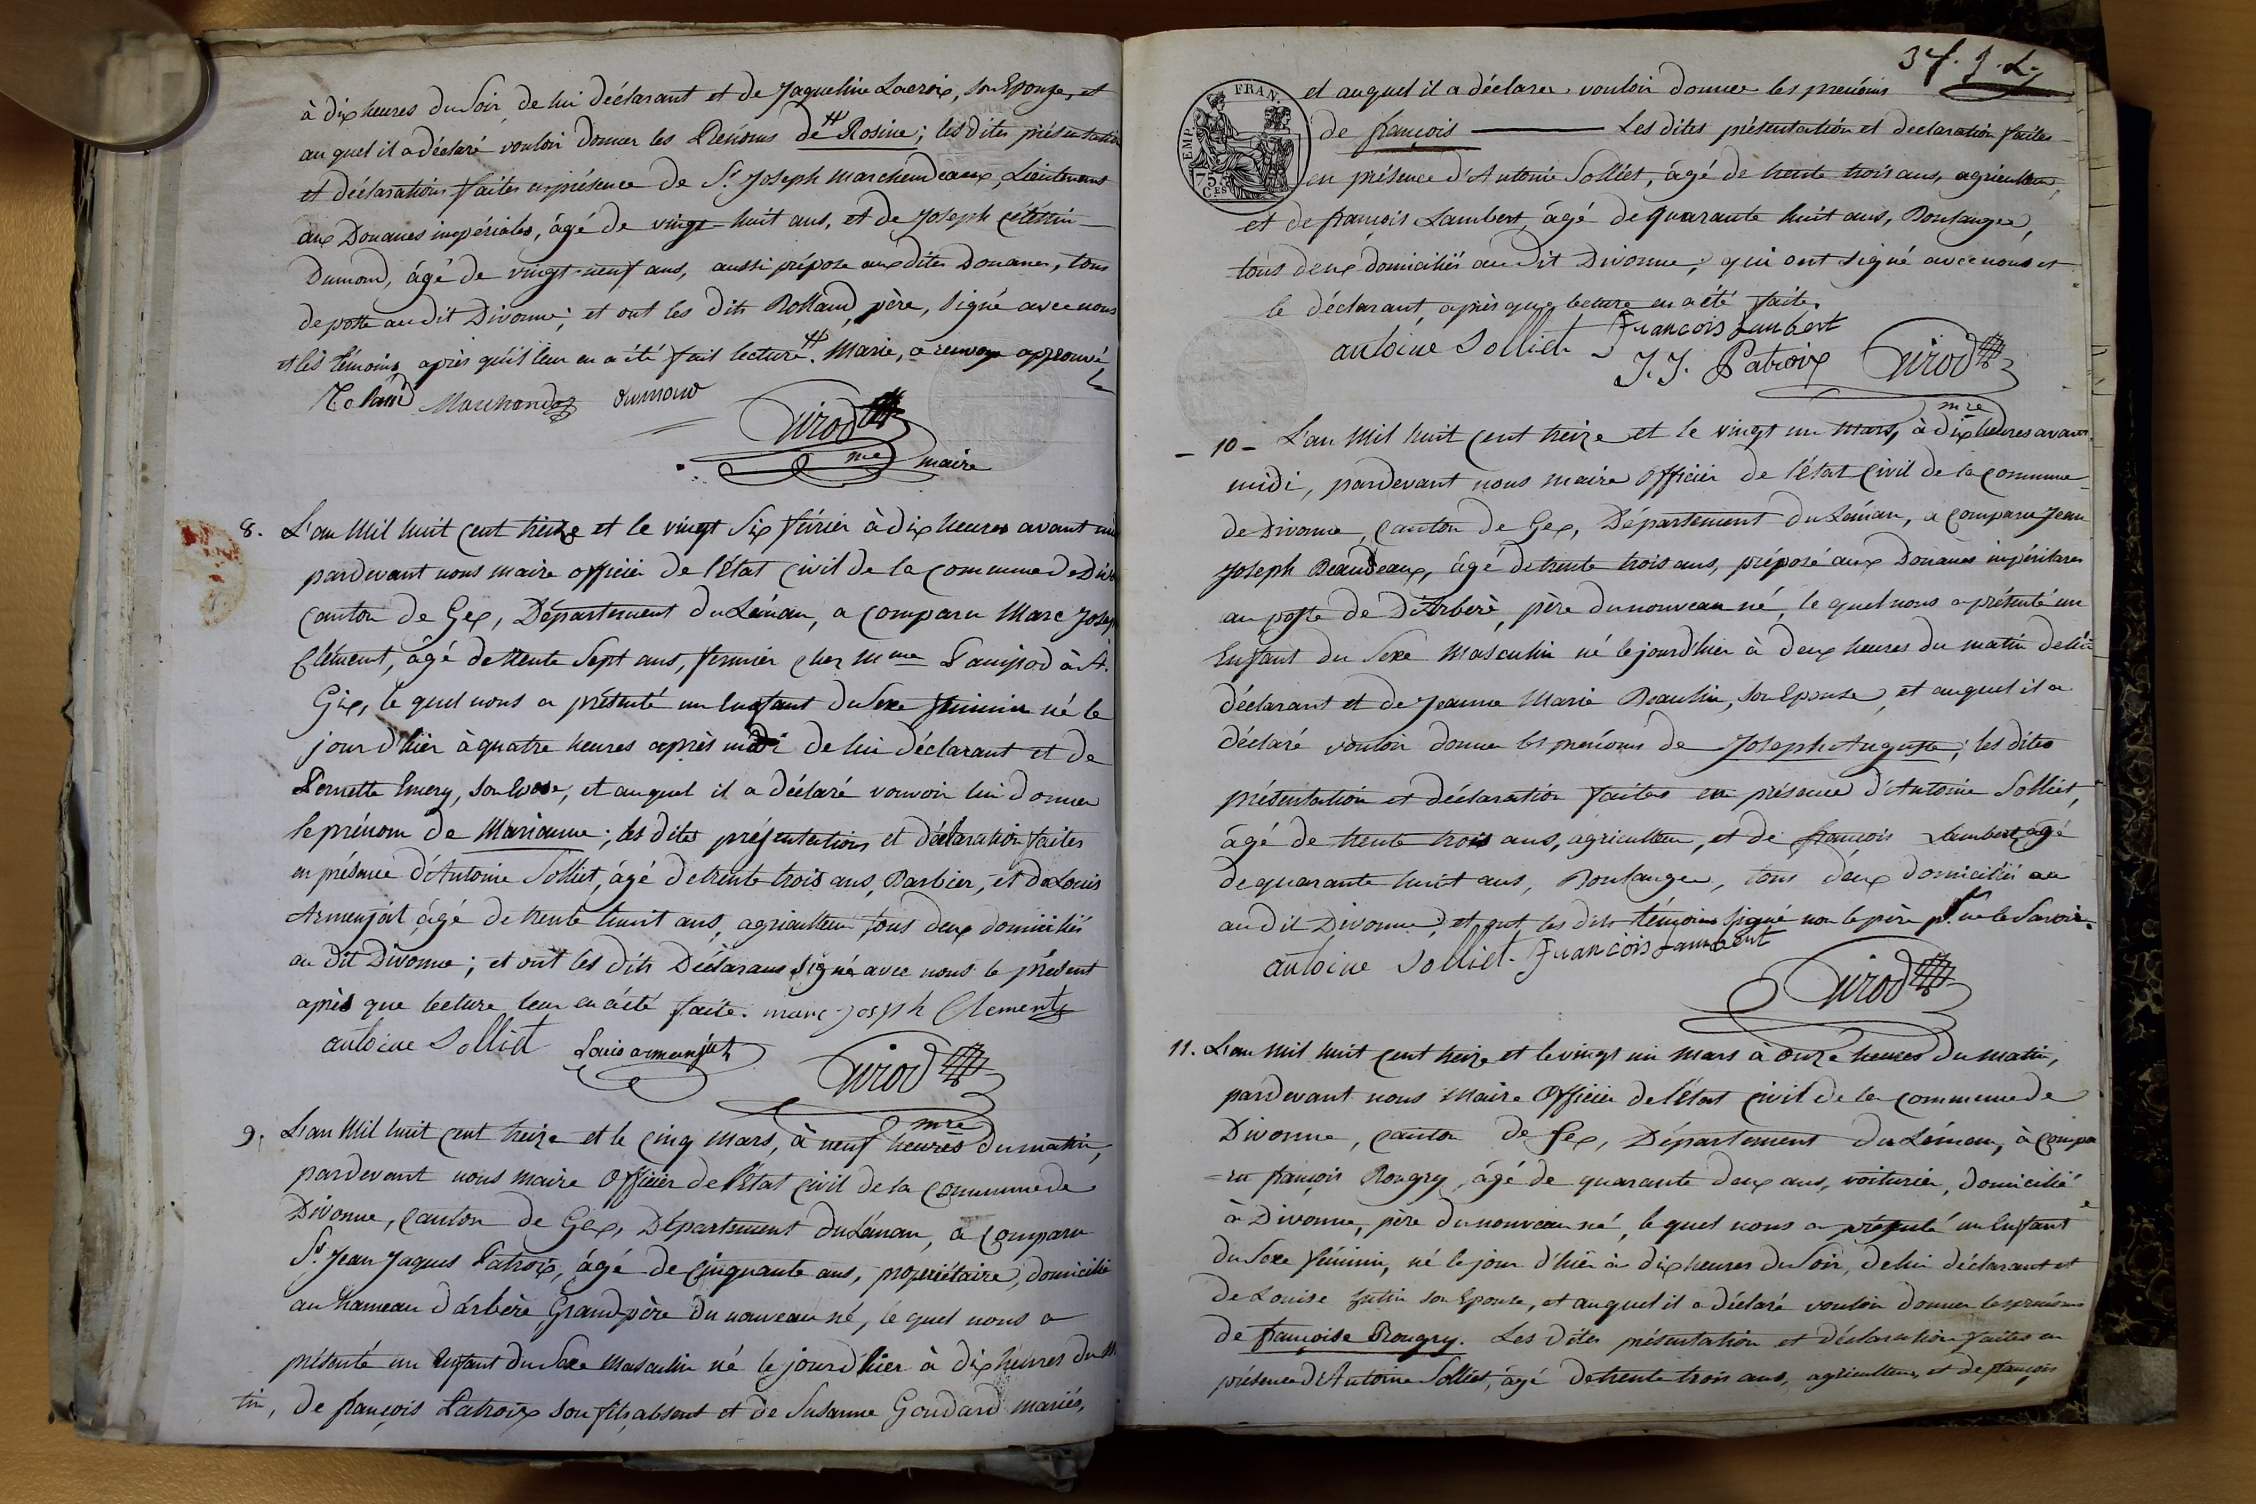 à dix heures du Soir de lui déclarant et de Jaqueline Lacroix, son Epouse, et
au quel il a déclaré vouloir donner les Prénoms de # Rosine; les dites présentation
et déclarations faites en présence de Sr. Joseph Marchendeaux, Lieutenant
aux Douanes impériales, âgé de vingt huit ans, et de Joseph Célestin
Dumond, âgé de vingt-neuf ans, aussi préposé aux dites Douanes, tous
de poste au dit Divonne; et ont les dits Rolland père, signé avec nous
et les témoins après qu'il leur en a été fait lecture. # Marie, a renvoye approuvé
Roland Marchandoz dumond
Girod
mre maire
8. L'an Mil huit cent treize et le vingt Six févrièr à dix heures avant mi
pardevant nous maire officier de l'état Civil de la commune de Divo
canton de Gex, Département du Léman, a comparu Marc Josep
Clément, âgé de trente Sept ans, fermier chez Mme Panissod à St.
Gix, le quel nous a présenté un Enfant du Sexe féminin né le
jour d'hier à quatre heures après midi de lui déclarant et de
Pernette Emery, son Epose, et au quel il a déclaré vouvoir lui donner
le prénom de Marianne; les dites présentations et déclaration faites
en présence d'Antoine Solliet, âgé de trente trois ans, Barbier, et de Louis
Armenjoit âgé de trente huit ans, agriculteur, tous deux domiciliés
au dit Divonne; et ont les dits Déclarans signé avec nous le présent
après que lecture leur en a été faite. marc joseph Clement
antoine Solliet Louis armenjut Girod
mre
9. L'an Mil huit cent treize et le cinq Mars, à neuf heures du matin,
pardevant nous Maire Officier de l'Etat civil de la commune de
Divonne, Canton de Gex, Département du Léman, a comparu
Sr. Jean Jaques Patroix, âgé de cinquante ans, propriétaire, domicilié
au hameau d'Arbère, Grandpère du nouveau né, le quel nous a
présenté un Enfant du Sexe Masculin né le jour d'hier à dix heures du M
tin, de françois Patroix son fils absent et de Susanne Goudard mariés,
37. J. L.
FRAN
TEMP
75
C.ES
et auquel il a déclarer vouloir donner les prénoms
de françois Les dites présentation et declaration faites
en présence d'Antoine Solliet, âgé de trente trois ans, agriculteur,
et de françois Lambert âgé de quarante huit ans, Boulanger,
tous deux domiciliés au dit Divonne; qui ont signé avec nous et
le déclarant, après que lecture en a été faite.
antoine Solliet François Lambert
J. J. Patroix Girod
mre
10 - L'an Mil huit cent treize et le vingt un Mars, à dix heures avant
midi, pardevant nous maire Officier de l'état Civil de la commune
de Divonne, canton de Gex, Département du Léman, a comparu Jean
Joseph Beaudeaux, âgé de trente trois ans, préposé aux Douanes impériales
au poste de d'Arberè, père du nouveau né, le quel nous a présenté un
Enfant du Sexe Masculin né le jourd'hier à deux heures du matin de lui
déclarant et de Jeanne Marie Beaulin, son Epouse, et auquel il a
déclaré vouloir donner les prenoms de Joseph Auguste; les dites
présentation et déclaration faites en présence d'Antoine Solliet,
âgé de trente trois ans, agriculteur, et de françois Lambert, âgé
de quarante huit ans, Boulanger, tous deux domiciliés au
au dit Divonne, et ont les dits témoins signé non le père pr. ne le Savoir.
antoine Solliet. François Lambert
Girod
11. L'an Mil huit cent treize et le vingt un Mars à onze heures du matin,
pardevant nous Maire Officier de l'état civil de la commune de
Divonne, canton de Gex, Département du Léman, à compa
=ru françois Rougry, âgé de quarante deux ans, voiturier, domicilié
à Divonne, père du nouveau né, le quel nous a présenté un Enfant
du Sexe féminin, né le jour d'hier à dix heures du Soir, de lui déclarant et
de Louise Jutin son Epouse, et auquel il a déclaré vouloir donner les prénoms
de françoise Rougry. Les dites présentation et déclaration faites en
présence d'Antoine Solliet, âgé de trente trois ans, agriculteur, et de françois